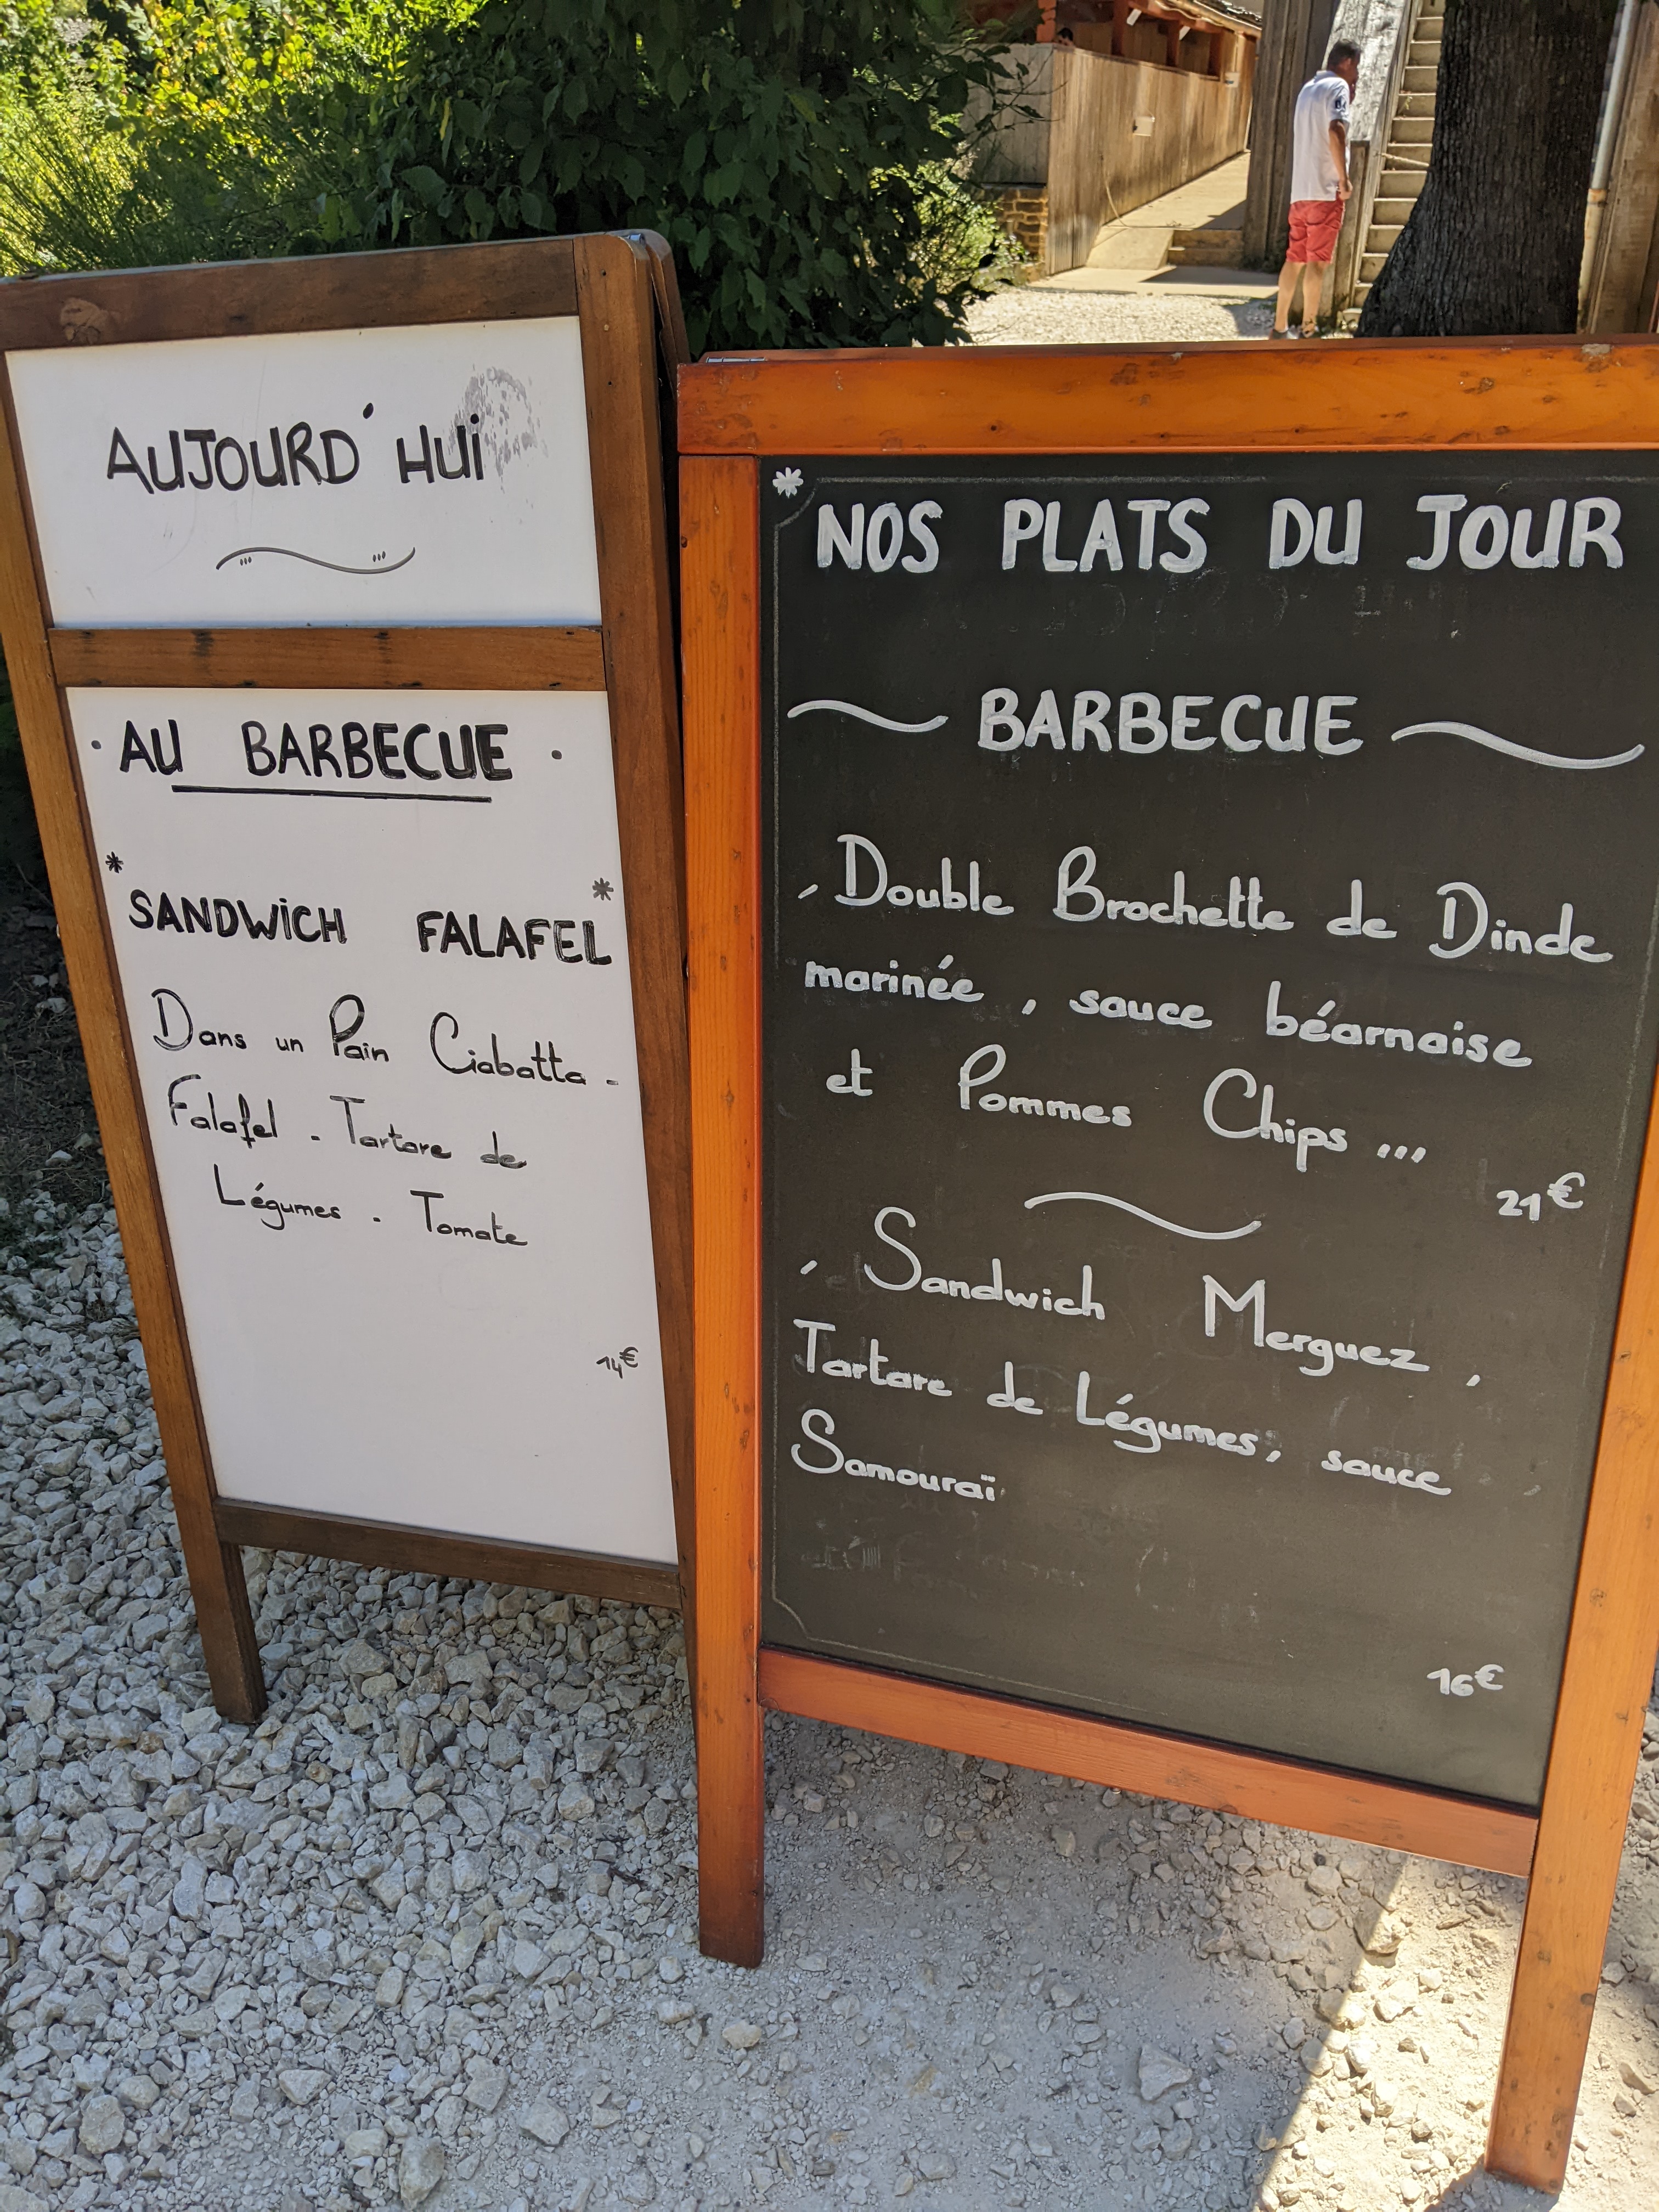 AUJOURD'HUi
· AU BARBECUE ·
* SANDWiCH FALAFEL *
Dans un Pain Ciabatta -
Falafel - Tartare de
Légumes - Tomate
14€
* NOS PLATS DU JOUR
~ BARBECUE ~
, Double Brochette de Dinde
marinée , sauce béarnaise
et Pommes Chips ...
21€
, Sandwich Merguez ,
Tartare de Légumes, sauce
Samouraï
16€